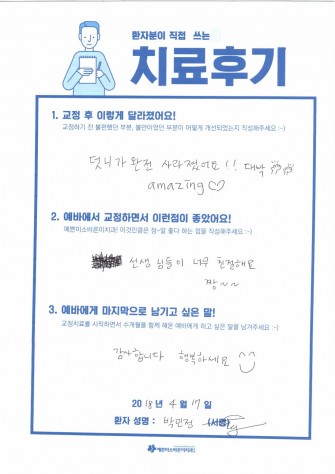 환자분이 직접 쓰는
치료후기
1. 교정 후 이렇게 달라졌어요!
교정하기 전 불편했던 부분, 불만이었던 부분이 어떻게 개선되었는지 작성해주세요 :-)
덧니가 완전 사라졌어요!! 대박
amazing♡
2. 예바에서 교정하면서 이런점이 좋았어요!
예쁜미소바른이치과! 이것만큼은 정~말 좋다 하는 점을 작성해주세요 :-)
선생님들이 너무 친절해요
짱~~
3. 예바에게 마지막으로 남기고 싶은 말!
교정치료를 시작하면서 수개월을 함께 해온 예바에게 하고 싶은 말을 남겨주세요 :-)
감사합니다 행복하세요
2018년 4월 17일
환자 성명 : 박민정 (서명)
예쁜미소바른이치과